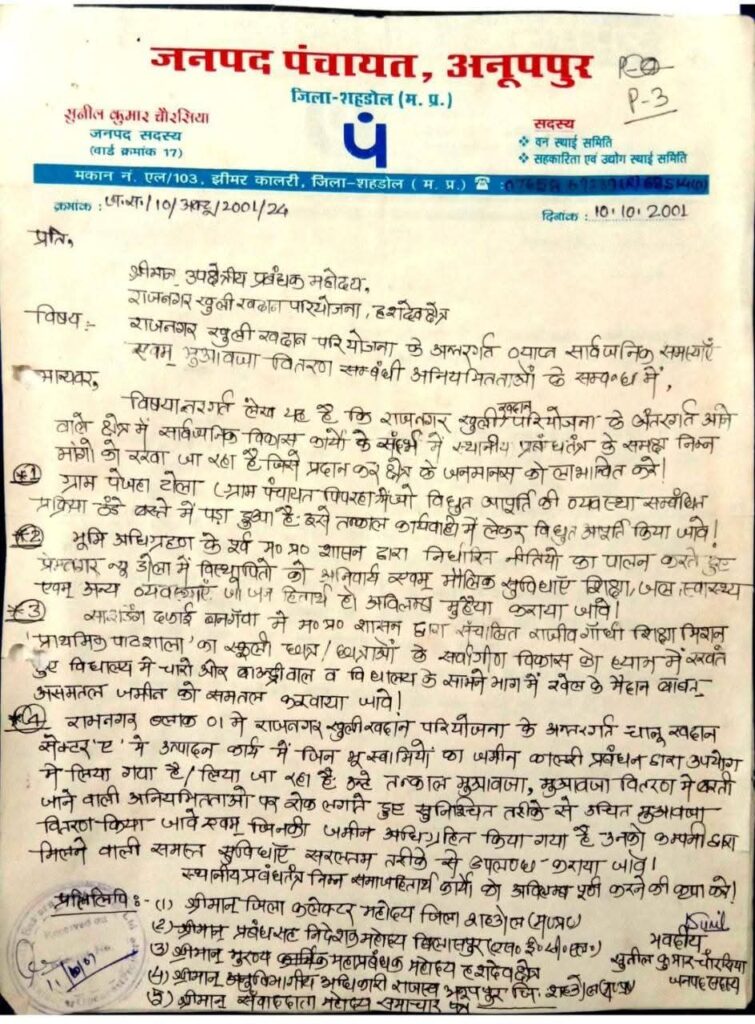 जनपद पंचायत, अनूपपुर
P-3
जिला-शहडोल (म. प्र.)
सुनील कुमार चौरसिया
जनपद सदस्य
(वार्ड क्रमांक 17)
पं
सदस्य
वन स्थाई समिति
सहकारिता एवं उद्योग स्थाई समिति
मकान नं. एल/103, झीमर कालरी, जिला-शहडोल ( म. प्र.) ☎ :
क्रमांक : ज.स./10/अक्टू/2001/24
दिनांक : 10.10.2001
प्रति,
श्रीमान् उपक्षेत्रीय प्रबंधक महोदय,
राजनगर खुली खदान परियोजना, हसदेव क्षेत्र
विषय :- राजनगर खुली खदान परियोजना के अन्तरगर्त व्याप्त सार्वजनिक समस्याएँ
एवम् मुआवजा वितरण सम्बंधी अनियमितताओं के सम्बन्ध में,
मान्यवर,
विषयान्तरगर्त लेख यह है कि राजनगर खुली खदान परियोजना के अंतरगर्त आने
वाले क्षेत्र में सार्वजनिक विकास कार्यो के संदर्भ में स्थानीय प्रबंधतंत्र के समक्ष निम्न
मांगो को रखा जा रहा है जिसे प्रदान कर क्षेत्र के जनमानस को लाभान्वित करे!
*1 ग्राम पोजहा टोला (ग्राम पंचायत पिपरहा में जो विद्युत आपूर्ति की व्यवस्था सम्बंधित
प्रक्रिया ठंडे बस्ते में पड़ा हुआ है. इसे तत्काल कार्यवाही में लेकर विद्युत आपूर्ति किया जावे!
*2 भूमि अधिग्रहण के पूर्व म० प्र० शासन द्वारा निर्धारित नीतियों का पालन करते हुए
प्रेमनगर न्यू डोला में विस्थापितों को अनिवार्य एवम् मौलिक सुविधाएँ शिक्षा, जल, स्वास्थ्य
एवम् अन्य व्यवस्थाएँ जो जन हितार्थ हो अविलम्ब मुहैया कराया जावे!
*3 साइडिंग दफाई बनगँवा में म० प्र० शासन द्वारा संचालित राजीव गाँधी शिक्षा मिशन
'प्राथमिक पाठशाला' का स्कूली छात्र/छात्राओं के सर्वांगीण विकास को ध्यान में रखते
हुए विद्यालय में चारो ओर बाउन्ड्रीवाल व विद्यालय के सामने भाग में खेल के मैदान बाबत्
असमतल जमीन को समतल करवाया जावे!
*4 रामनगर ब्लाक 01 में राजनगर खुली खदान परियोजना के अन्तरगर्त चालू खदान
सेक्टर 'ए' में उत्पादन कार्य में जिन भू स्वामियों का जमीन कालरी प्रबंधन द्वारा उपयोग
में लिया गया है/लिया जा रहा है उन्हे तत्काल मुआवजा, मुआवजा वितरण में बरती
जाने वाली अनियमितताओ पर रोक लगाते हुए सुनिश्चित तरीके से उचित मुआवजा
वितरण किया जावे एवम् जिनकी जमीन अधिग्रहित किया गया है उनको कम्पनी द्वारा
मिलने वाली समस्त सुविधाएँ सरलतम तरीके से उपलब्ध कराया जावे!
स्थानीय प्रबंधतंत्र निम्न समाजहितार्थ कार्यो को अविलम्ब पूर्ण करने की कृपा करे!
प्रतिलिपि :- (1) श्रीमान् जिला कलेक्टर महोदय जिला शहडोल (म०प्र०)
(2) श्रीमान् प्रबंध सह निदेशक महोदय बिलासपुर (एस. ई. सी. एल.)
(3) श्रीमान् मुख्य महाप्रबंधक महोदय हसदेव क्षेत्र
(4) श्रीमान् अनुविभागीय अधिकारी राजस्व अनूपपुर जि. शहडोल (म०प्र०)
(5) श्रीमान् संवाददाता महोदय समाचार पत्र
Sunil
भवदीय
सुनील कुमार चौरसिया
जनपद सदस्य